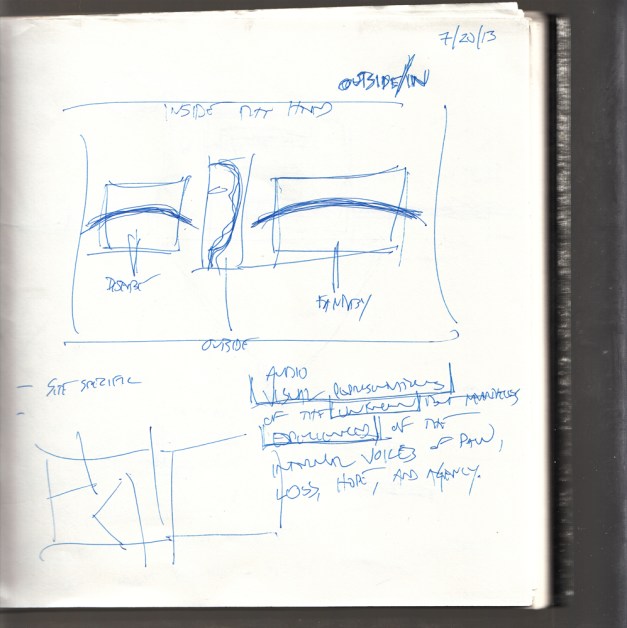 7/20/13
OUTSIDE/IN
INSIDE MY HAND
OUTSIDE
— SITE SPECIFIC
AUDIO
VISUAL REPRESENTATIONS
OF THE UNKNOWN BUT
EXPERIENCED OF THE
INTERNAL VOICES OF PAIN,
LOSS, HOPE, AND AGENCY.